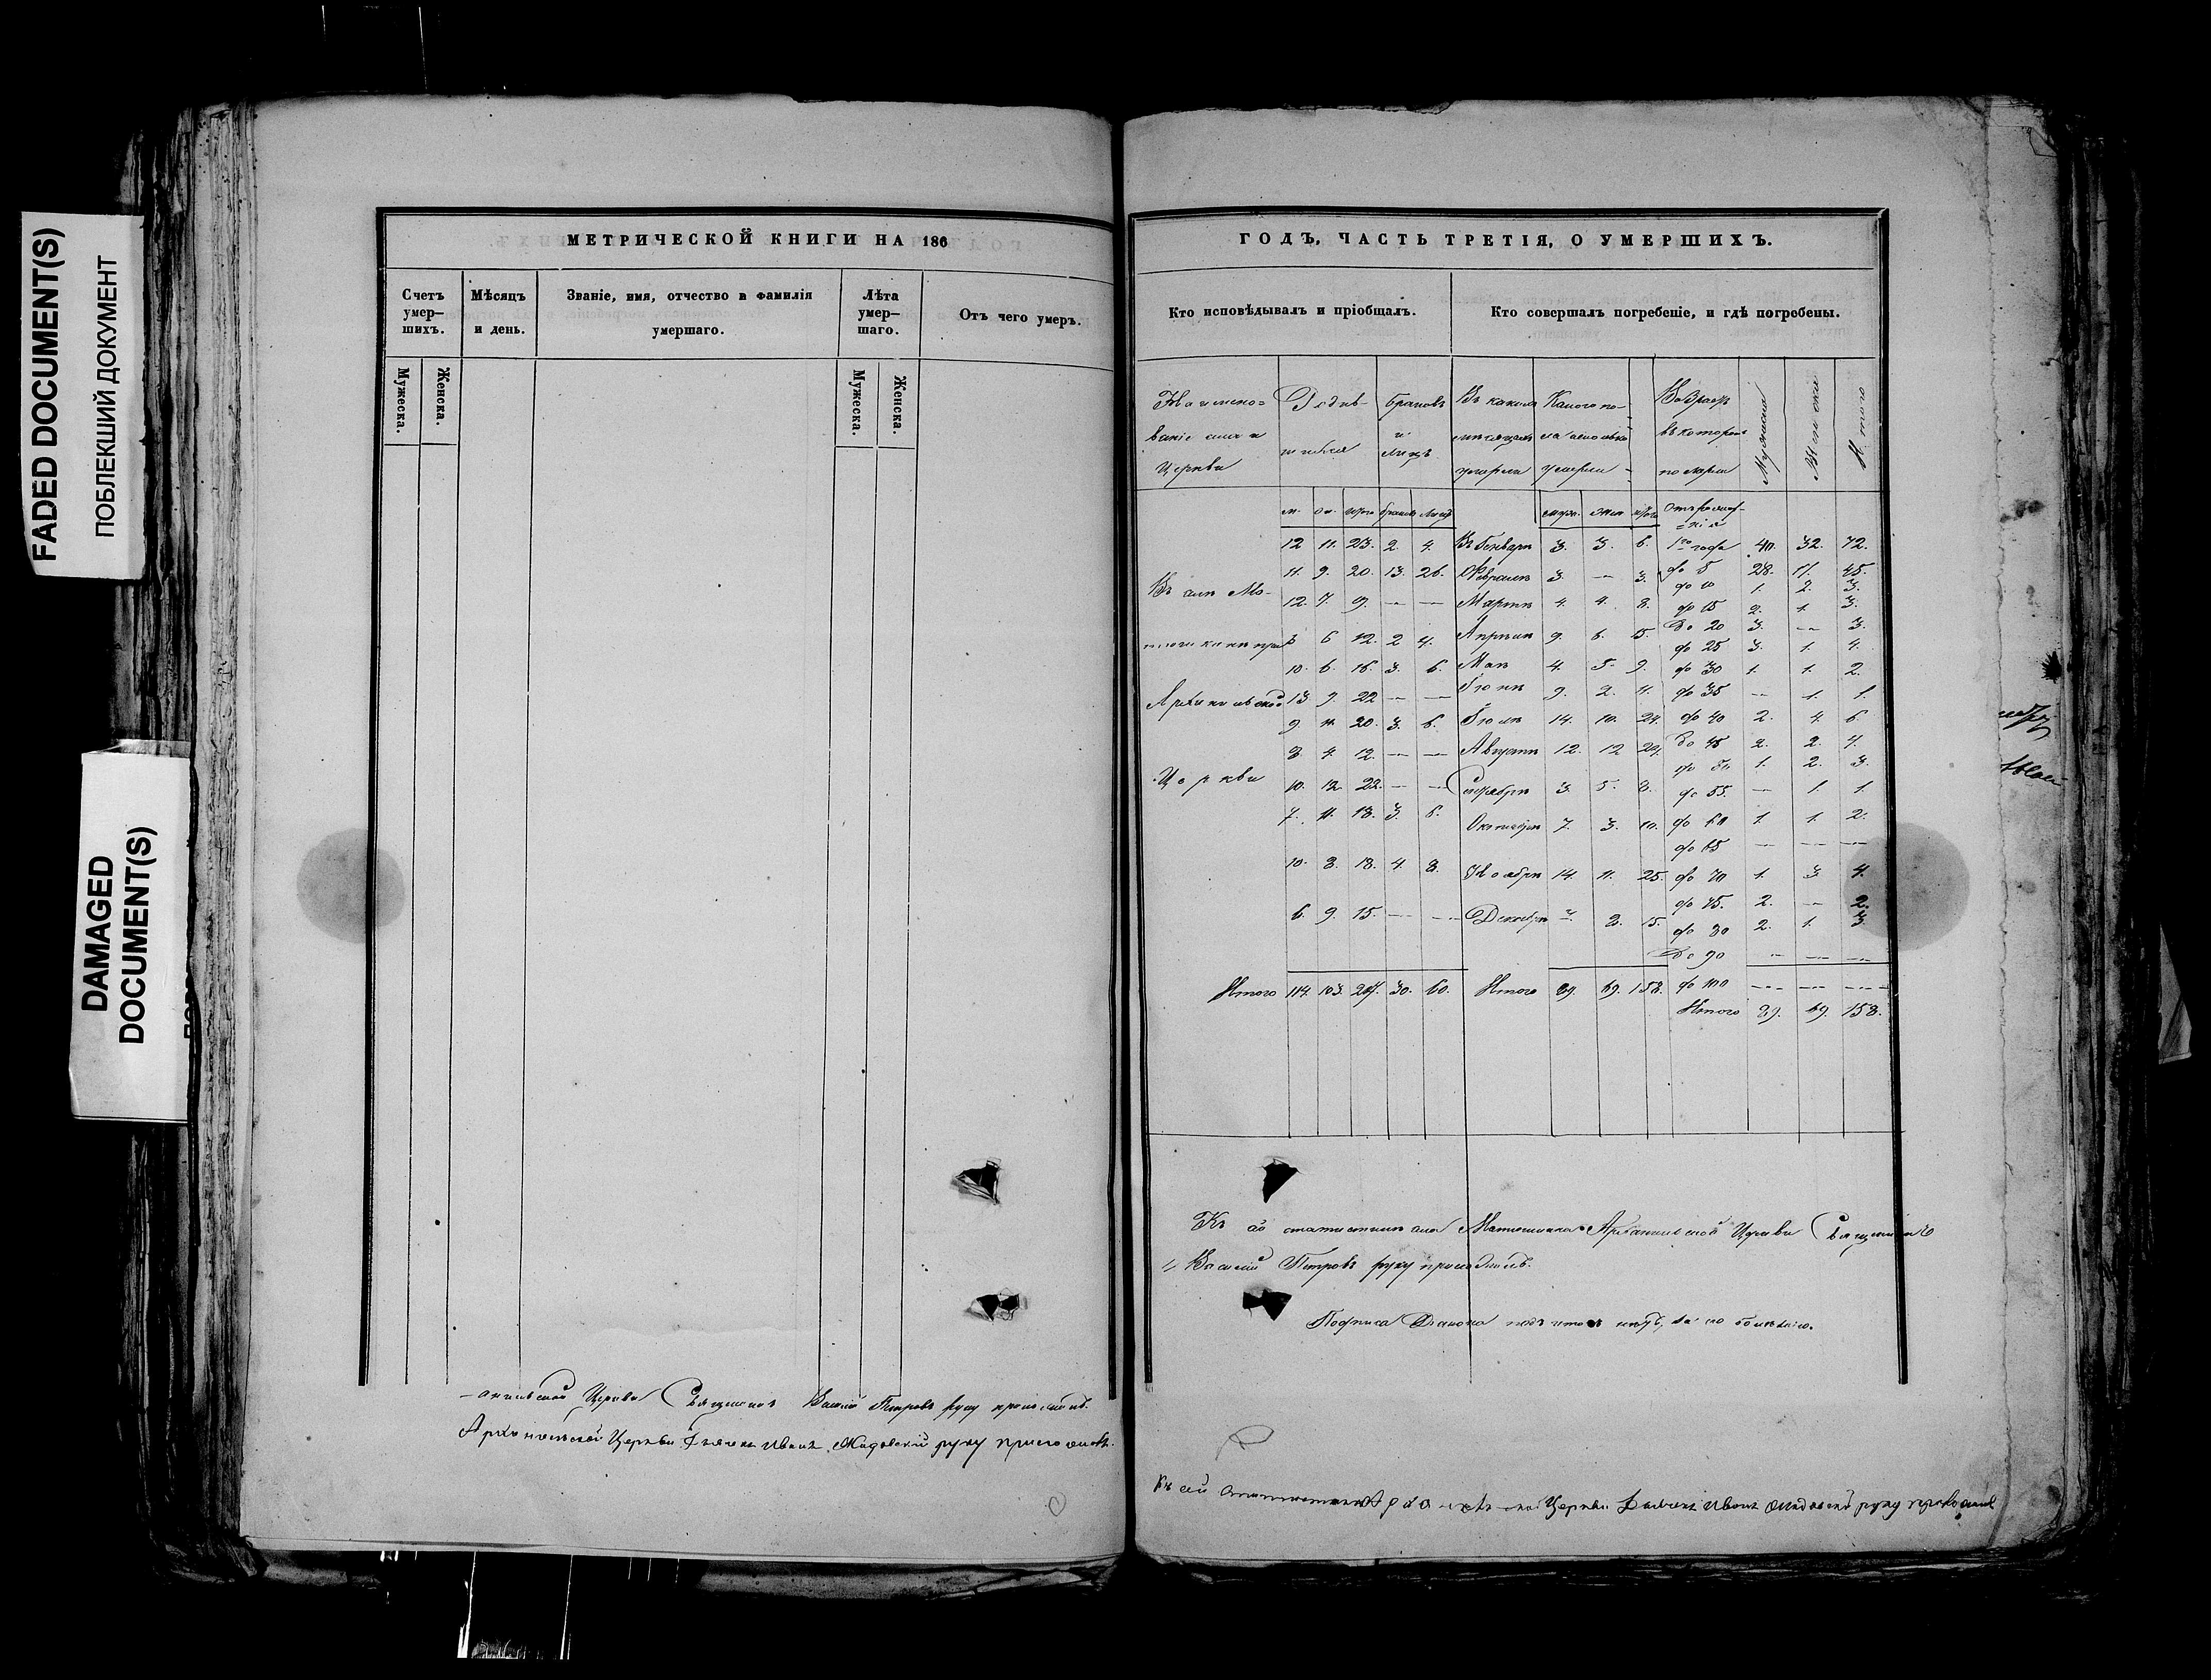 FADED DOCUMENT(S)
ПОБЛЕКШИЙ ДОКУМЕНТ
DAMAGED
DOCUMENT(S)
МЕТРИЧЕСКОЙ КНИГИ НА 186
Счетъ умер–шихъ.
Мѣсяцъ и день.
Званіе, имя, отчество и фамилія умершаго.
Лѣта умер–шаго.
Отъ чего умеръ.
Мужеска.
Женска.
Мужеска.
Женска.
Церкви Священникъ Василій Петровъ руку приложилъ.
Архангельской Церкви Дьячекъ Иванъ руку приложилъ.
ГОДЪ, ЧАСТЬ ТРЕТІЯ, О УМЕРШИХЪ.
Кто исповѣдывалъ и пріобщалъ.
Кто совершалъ погребеніе, и гдѣ погребены.
Наимено=
ваніе села и
Церкви
Родив-
шихся
браковъ
и
лицъ
Въ какомъ
мѣсяцѣ
умерли
Какого по-
ла
умерли
Возрастъ
въ которомъ
померли
Мужеска
Женска
Итого
м. ж. итого браковъ лицъ муж. жен итого Отъ рожде-
=нія
12 11. 23. 2. 4. Въ Январѣ 3. 3. 6. 1го года 40. 32. 72.
11. 9. 20. 13. 26. Февралѣ 3. — 3. до 5 28. 17. 45.
до 10 1. 2. 3.
12. 7. 9. — — Мартѣ 4. 4. 8. до 15 2. 1. 3.
до 20 3. — 3.
6 6 12. 2 4. Апрѣлѣ 9. 6. 15. до 25 3. 1. 4.
10. 6. 16. 3. 6. Маѣ 4. 5. 9. до 30 1. 1. 2.
Архангельской 13 9. 22 — — Іюнѣ 9. 2. 11. до 35 — 1. 1.
9 11. 20. 3. 6. Іюлѣ 14. 10. 24. до 40 2. 4. 6
8 4. 12. — — Августѣ 12. 12 24. до 45 2. 2. 4.
Церкви
до 50 1. 2. 3.
10. 12. 22. — — Сентябрѣ 3. 5. 8. до 55. — 1. 1.
7. 11. 18. 3. 6. Октябрѣ 7. 3. 10. до 60 1. 1. 2.
до 65 — — —
10. 8. 18. 4 8. Ноябрѣ 14. 11. 25. до 70 1. 3. 4.
до 75. 2. — 2.
6. 9. 15. — — Декабрѣ 8. 15. до 80 2. 1. 3.
До 90 — — —
Итого 114. 103. 217. 30. 60. Итого 89. 69. 158. до 100 — — —
Итого 89. 69. 158.
Къ сей статистикѣ села Архангельской Церкви Священникъ
Василій Петровъ руку приложилъ.
Подписа Дьякона нѣтъ, за его болѣзнію.
Къ сей Церкви Дьячекъ Иванъ руку приложилъ